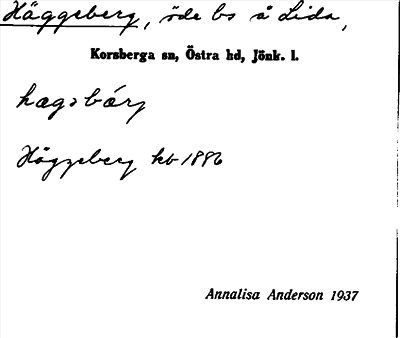 Häggeberg, öde bs å Lida,
Korsberga sn, Östra hd, Jönk. l.
hægsbárj
Häggeberg hb 1886
Annalisa Anderson 1937